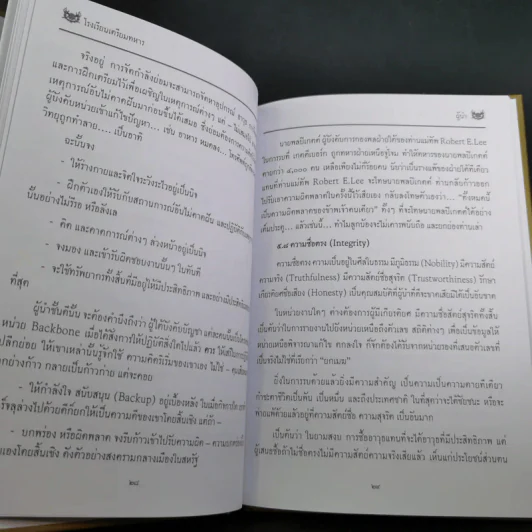 โรงเรียนเตรียมทหาร
จริงอยู่ การจัดกำลังย่อมจะสามารถจัดหาอุปกรณ์
และการฝึกเตรียมไว้เพื่อเผชิญในเหตุการณ์ต่างๆ แต่
เหตุการณ์อันไม่คาดฝันมาก่อนขึ้นได้เสมอ ซึ่งย่อมต้องการความ
ผู้บังคับหน่วยเข้าแก้ไขปัญหา... เช่น อาหาร หมดลง...
วิทยุถูกทำลาย.... เป็นอาทิ
ฉะนั้นจง
- ให้ร่างกายและจิตใจระวังระไวอยู่เป็นนิจ
- ฝึกตัวเองให้รับกับสถานการณ์อันไม่คาดฝัน และปฏิบัติ
นั้นอย่างไม่รีรอ หรือลังเล
- คิด และคาดการณ์ต่างๆ ล่วงหน้าอยู่เป็นนิจ
- จงมอง และเข้ารับผิดชอบงานนั้นๆ ในทันที
- จะใช้ทรัพยากรทั้งสิ้นที่มีอยู่ให้มีประสิทธิภาพ และอย่างมีประสิทธิผล
ที่สุด
ผู้นำชั้นดีนั้น จะต้องคำนึงถึงว่า ผู้ใต้บังคับบัญชา แต่ละคนนั้น
หน่วย Backbone เมื่อได้สั่งการให้ปฏิบัติสิ่งใดไปแล้ว ควร ให้เสรีในการ
ปลีกย่อย ให้เขาเหล่านั้นรู้จักใช้ ความคิดริเริ่มของเขาเอง ไม่ใช่ -
กอย่างก้าว กลายเป็นก้าวก่าย แต่จะคอย
- ให้กำลังใจ สนับสนุน (Backup) อยู่เบื้องหลัง ในเมื่อกิจการใด
ร็จลุล่วงไปด้วยดีก็ยกให้เป็นความดีของเขาโดยสิ้นเชิง แต่ถ้า -
- บกพร่อง หรือผิดพลาด จงรีบก้าวเข้าไปรับความผิด -
เองโดยสิ้นเชิง ดังตัวอย่างสงครามกลางเมืองในสหรัฐ
๒๘
ผู้นำ
นายพลปิเกตต์ ผู้บังคับการกองพลฝ่ายใต้ของท่านแม่ทัพ Robert E.Lee
ในการรบที่ เกตตี้เบอร์ก ถูกทหารฝ่ายเหนือจู่โจม ทำให้ทหารของนายพลปิเกตต์
ตายกว่า ๔,๐๐๐ คน เหลือเพียงไม่กี่ร้อยคน นับว่าเป็นรางแค่ฝ่ายใต้ได้ทีเดียว
แทนที่ท่านแม่ทัพ Robert E.Lee จะโทษนายพลปิเกตต์ ท่านกลับก้าวออก
ไปรับเอาความผิดพลาดในครั้งนี้ไว้เสียเอง กลับลงโทษตัวเองว่า... "ทั้งหมดนี้
เป็นความผิดพลาดของข้าพเจ้าคนเดียว" ทั้งๆ ที่จะโทษนายพลปิเกตต์ได้อย่าง
เต็มประตู... แล้วเช่นนี้... ทำไมลูกน้องจะไม่เคารพนับถือ และยกย่องท่านเล่า
๕.๘ ความซื่อตรง (Integrity)
ความซื่อตรง ความเป็นอยู่ในศีลในธรรม มีภูมิธรรม (Nobility) มีความสัตย์
ความจริง (Truthfulness) มีความสัตย์ซื่อสุจริต (Trustworthiness) รักษา
เกียรติคดซื่อเสียง (Honesty) เป็นคุณสมบัติที่ผู้นำที่ดีจะขาดเสียมิได้เป็นอันขาด
ในหน่วยงานใดๆ ต่างต้องการผู้มีเกียรติยศ มีความซื่อสัตย์สุจริตทั้งสิ้น
เช่นคันว่าในการรายงานไปยังหน่วยเหนือถึงตัวเลข สถิติต่างๆ เพื่อเป็นข้อมูลให้
หน่วยเหนือพิจารณาแก้ไข ตกลงใจ ก็จักต้องได้รับจากหน่วยรองที่เสนอตัวเลขที่
เป็นจริงไม่ใช่ที่เรียกว่า "ยกเมฆ"
ยิ่งในการรบด้วยแล้วยิ่งมีความสำคัญ เป็นความเป็นความตายทีเดียว
ถ้าจะคาชีวิตเป็นพัน เป็นหมื่น และถึงประเทศชาติ ในที่สุดว่าจะได้ชัยชนะ หรือจะ
พ่ายแพ้ด้วยแล้วอยู่ที่ความสัตย์ซื่อ ความสุจริต เป็นอันมาก
เป็นต้นว่า ในยามสงบ การซื้ออาวุธแทนที่จะได้อาวุธที่มีประสิทธิภาพ แต่
ผู้เสนอซื้อถ้าไม่ซื่อตรงไม่มีความสัตย์ความจริงเสียแล้ว เห็นแก่ประโยชน์ส่วนตน
๒๙